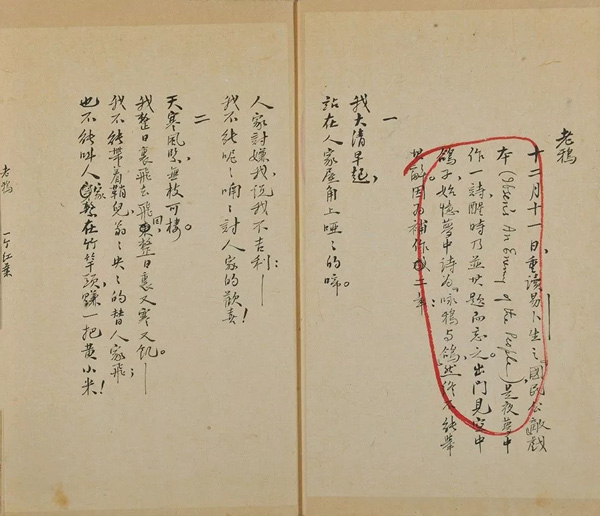 老鴉
十二月十一日，重讀易卜生之「國民公敵」戲
本 (Ibsen's An Enemy of the People) 是夜夢中
作一詩，醒時乃並其題而忘之。出門見空中
鴿子，始憶夢中詩為「咏鴉與鴿」，然終不能舉
其詞。因為補作成二章：
一
我大清早起，
站在人家屋角上啞〻的啼。
人家討嫌我，說我不吉利：—
我不能呢〻喃〻討人家的歡喜！
二
天寒風緊，無枝可棲。
我整日裏飛去飛回，整日裏又寒又飢。—
我不能帶着鞘兒翁〻央〻的替人家飛；
也不能叫人家繫在竹竿頭，賺一把黃小米！
老鴉